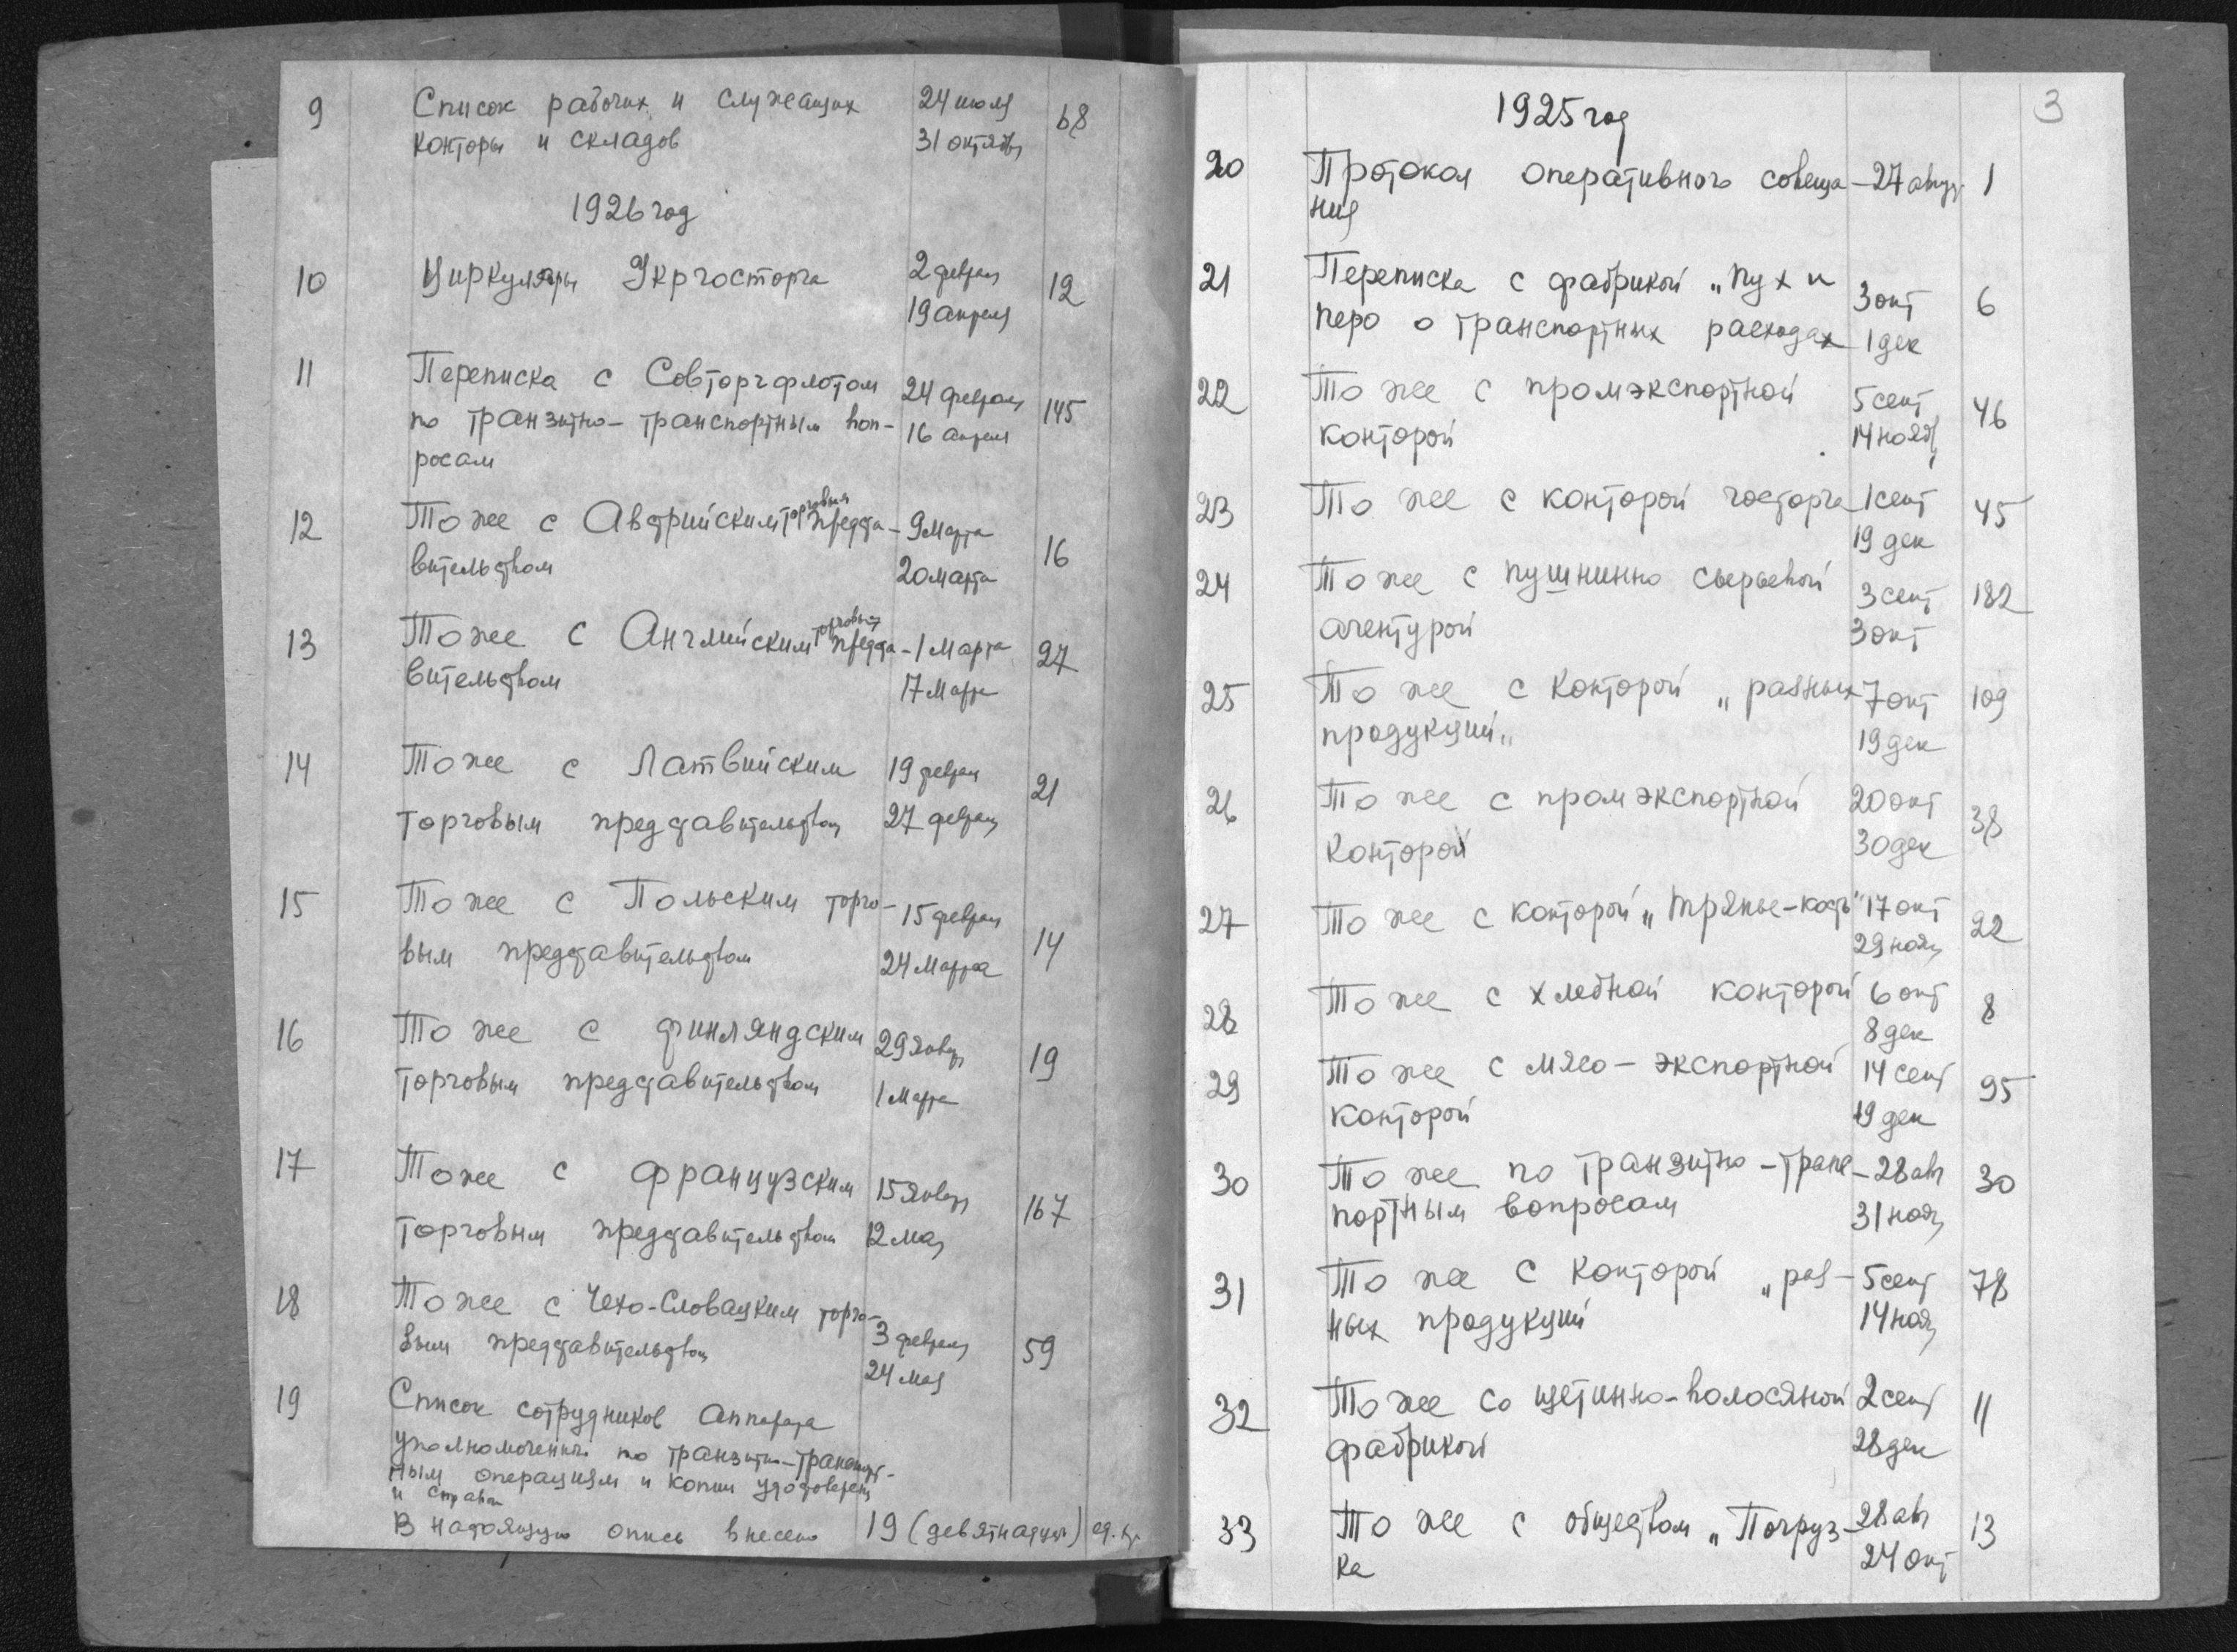 9 Список рабочих и служащих 24 июля 68
конторы и складов 31 октябр
1926 год
10 Циркуляры Укргосторга 2 феврал 12
19 апреля
11 Переписка с Совторгфлотом 24 феврал 145
по транзитно-транспортным воп- 16 апреля
росам
12 То же с Австрийским торговым предста- 9 марта 16
вительством 20 марта
13 То же с Английским торговым предста- 1 марта 27
вительством 17 марта
14 То же с Латвийским 19 феврал 21
торговым представительством 27 феврал
15 То же с Польским торго- 15 феврал 14
вым представительством 24 марта
16 То же с финляндским 29 январ 19
торговым представительством 1 марта
17 То же с французским 15 январ 167
торговым представительством 12 мая
18 То же с Чехо-Словацким торго-
вым представительством 3 феврал 59
24 мая
19 Список сотрудников аппарата
уполномоченного по транзитно-транспорт-
ным операциям и копии удостоверен
и справок
В настоящую опись внесено 19 (девятнадцать) ед. хр.
3
1925 год
20 Протокол оперативного совеща- 27 август 1
ния
21 Переписка с фабрикой „Пух и 3 окт 6
перо о транспортных расходах 1 дек
22 То же с промэкспортной 5 сент 46
конторой 14 ноябр
23 То же с конторой госторга 1 сент 45
19 дек
24 То же с пушнинно сырьевой 3 сент 182
агентурой 3 окт
25 То же с конторой „разных 7 окт 109
продукций„ 19 дек
26 То же с промэкспортной 20 окт 38
конторой 30 дек
27 То же с конторой „Тряпье-кость" 17 окт 22
29 нояб
28 То же с хлебной конторой 6 окт 8
8 дек
29 То же с мясо-экспортной 14 сент 95
конторой 19 дек
30 То же по транзитно-транс- 28 авг 30
портным вопросам 31 нояб
31 То же с конторой „раз- 5 сент 78
ных продукций 14 нояб
32 То же со щетинно-волосяной 2 сент 11
фабрикой 28 дек
33 То же с обществом „Погруз- 28 авг 13
ка 24 окт